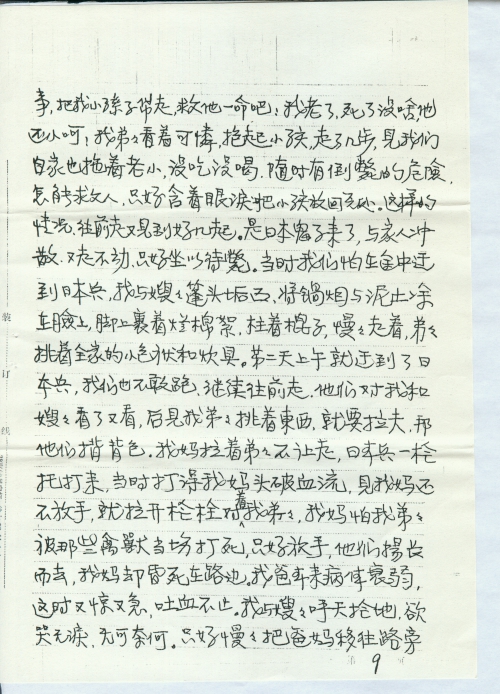 事,把我小孩子带走,救他一命吧!我老了,死了没啥,他
还小呵!我弟々看着可憐,抱起小孩,走了几步,見我们
自家也拖着老小,没吃没喝,随时有倒斃的危險,
怎能求文人,只好含着眼淚把小孩放回老处。这样的
情况,往前走又見到好几起。是日本鬼子来了,与家人冲
散,又走不动,只好坐以待斃。当时我们怕在途中迂
到日本兵,我与嫂々蓬头垢面,将锅烟与泥土涂
在臉上,脚上裹着烂棉絮,拄着棍子,慢々走着,弟々
挑着全家的小包袱和炊具。第二天上午就迂到了日
本兵,我们也不敢跑,继续往前走,他们对我和
嫂々看了又看,后見我弟々挑着東西,就要拉夫,帮
他们揹背包。我妈拉着弟々不让走,日本兵一枪
托打来,当时打得我妈头破血流,見我妈还
不放手,就拉开枪栓对着我弟々,我妈怕我弟々
被那些禽獸当场打死,只好放手,他们揚長
而去,我妈却昏死在路边。我爸年来病体衰弱,
这时又惊又急,吐血不止。我与嫂々呼天抢地,欲
哭无淚,无可奈何。只好慢々把爸妈移往路旁
9
装
订
线